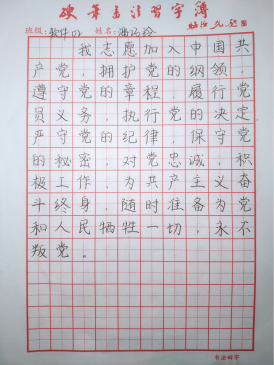 硬笔书法习字簿
班级：软件 姓名：
我志愿加入中国共
产党，拥护党的纲领，
遵守党的章程，履行党
员义务，执行党的决定
严守党的纪律，保守党
的秘密，对党忠诚，积
极工作，为共产主义奋
斗终身，随时准备为党
和人民牺牲一切，永不
叛党。